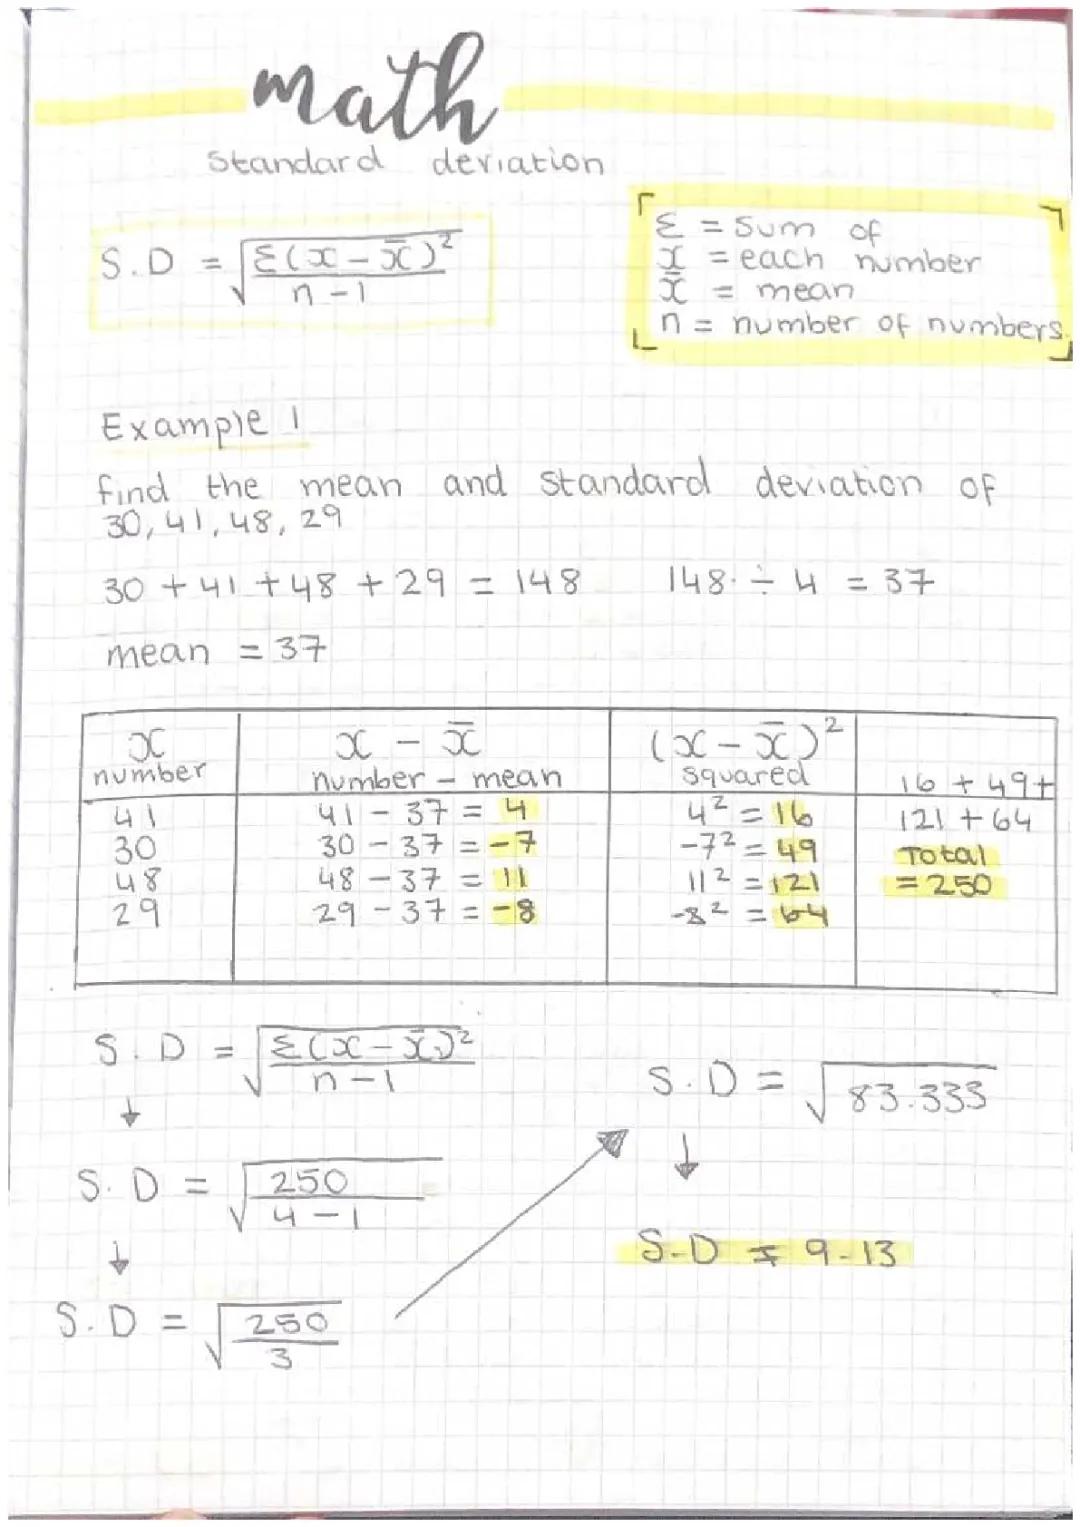 math
Standard deviation
S.D = √Σ(x - x̄)²
n - 1
Σ = Sum of
x = each number
x̄ = mean
n = number of numbers.
Example 1
find the mean and standard deviation of
30, 41, 48, 29
30 + 41 + 48 + 29 = 148 148 ÷ 4 = 37
mean = 37
x x - x̄ (x - x̄)²
number number - mean squared 16 + 49 +
41 41 - 37 = 4 4² = 16 121 + 64
30 30 - 37 = -7 -7² = 49 Total
48 48 - 37 = 11 11² = 121 = 250
29 29 - 37 = -8 -8² = 64
S.D = √Σ(x - x̄)²
n - 1
↓
S.D = √250
4 - 1
↓
S.D = √250
3
S.D = √83.333
↓
S.D = 9.13